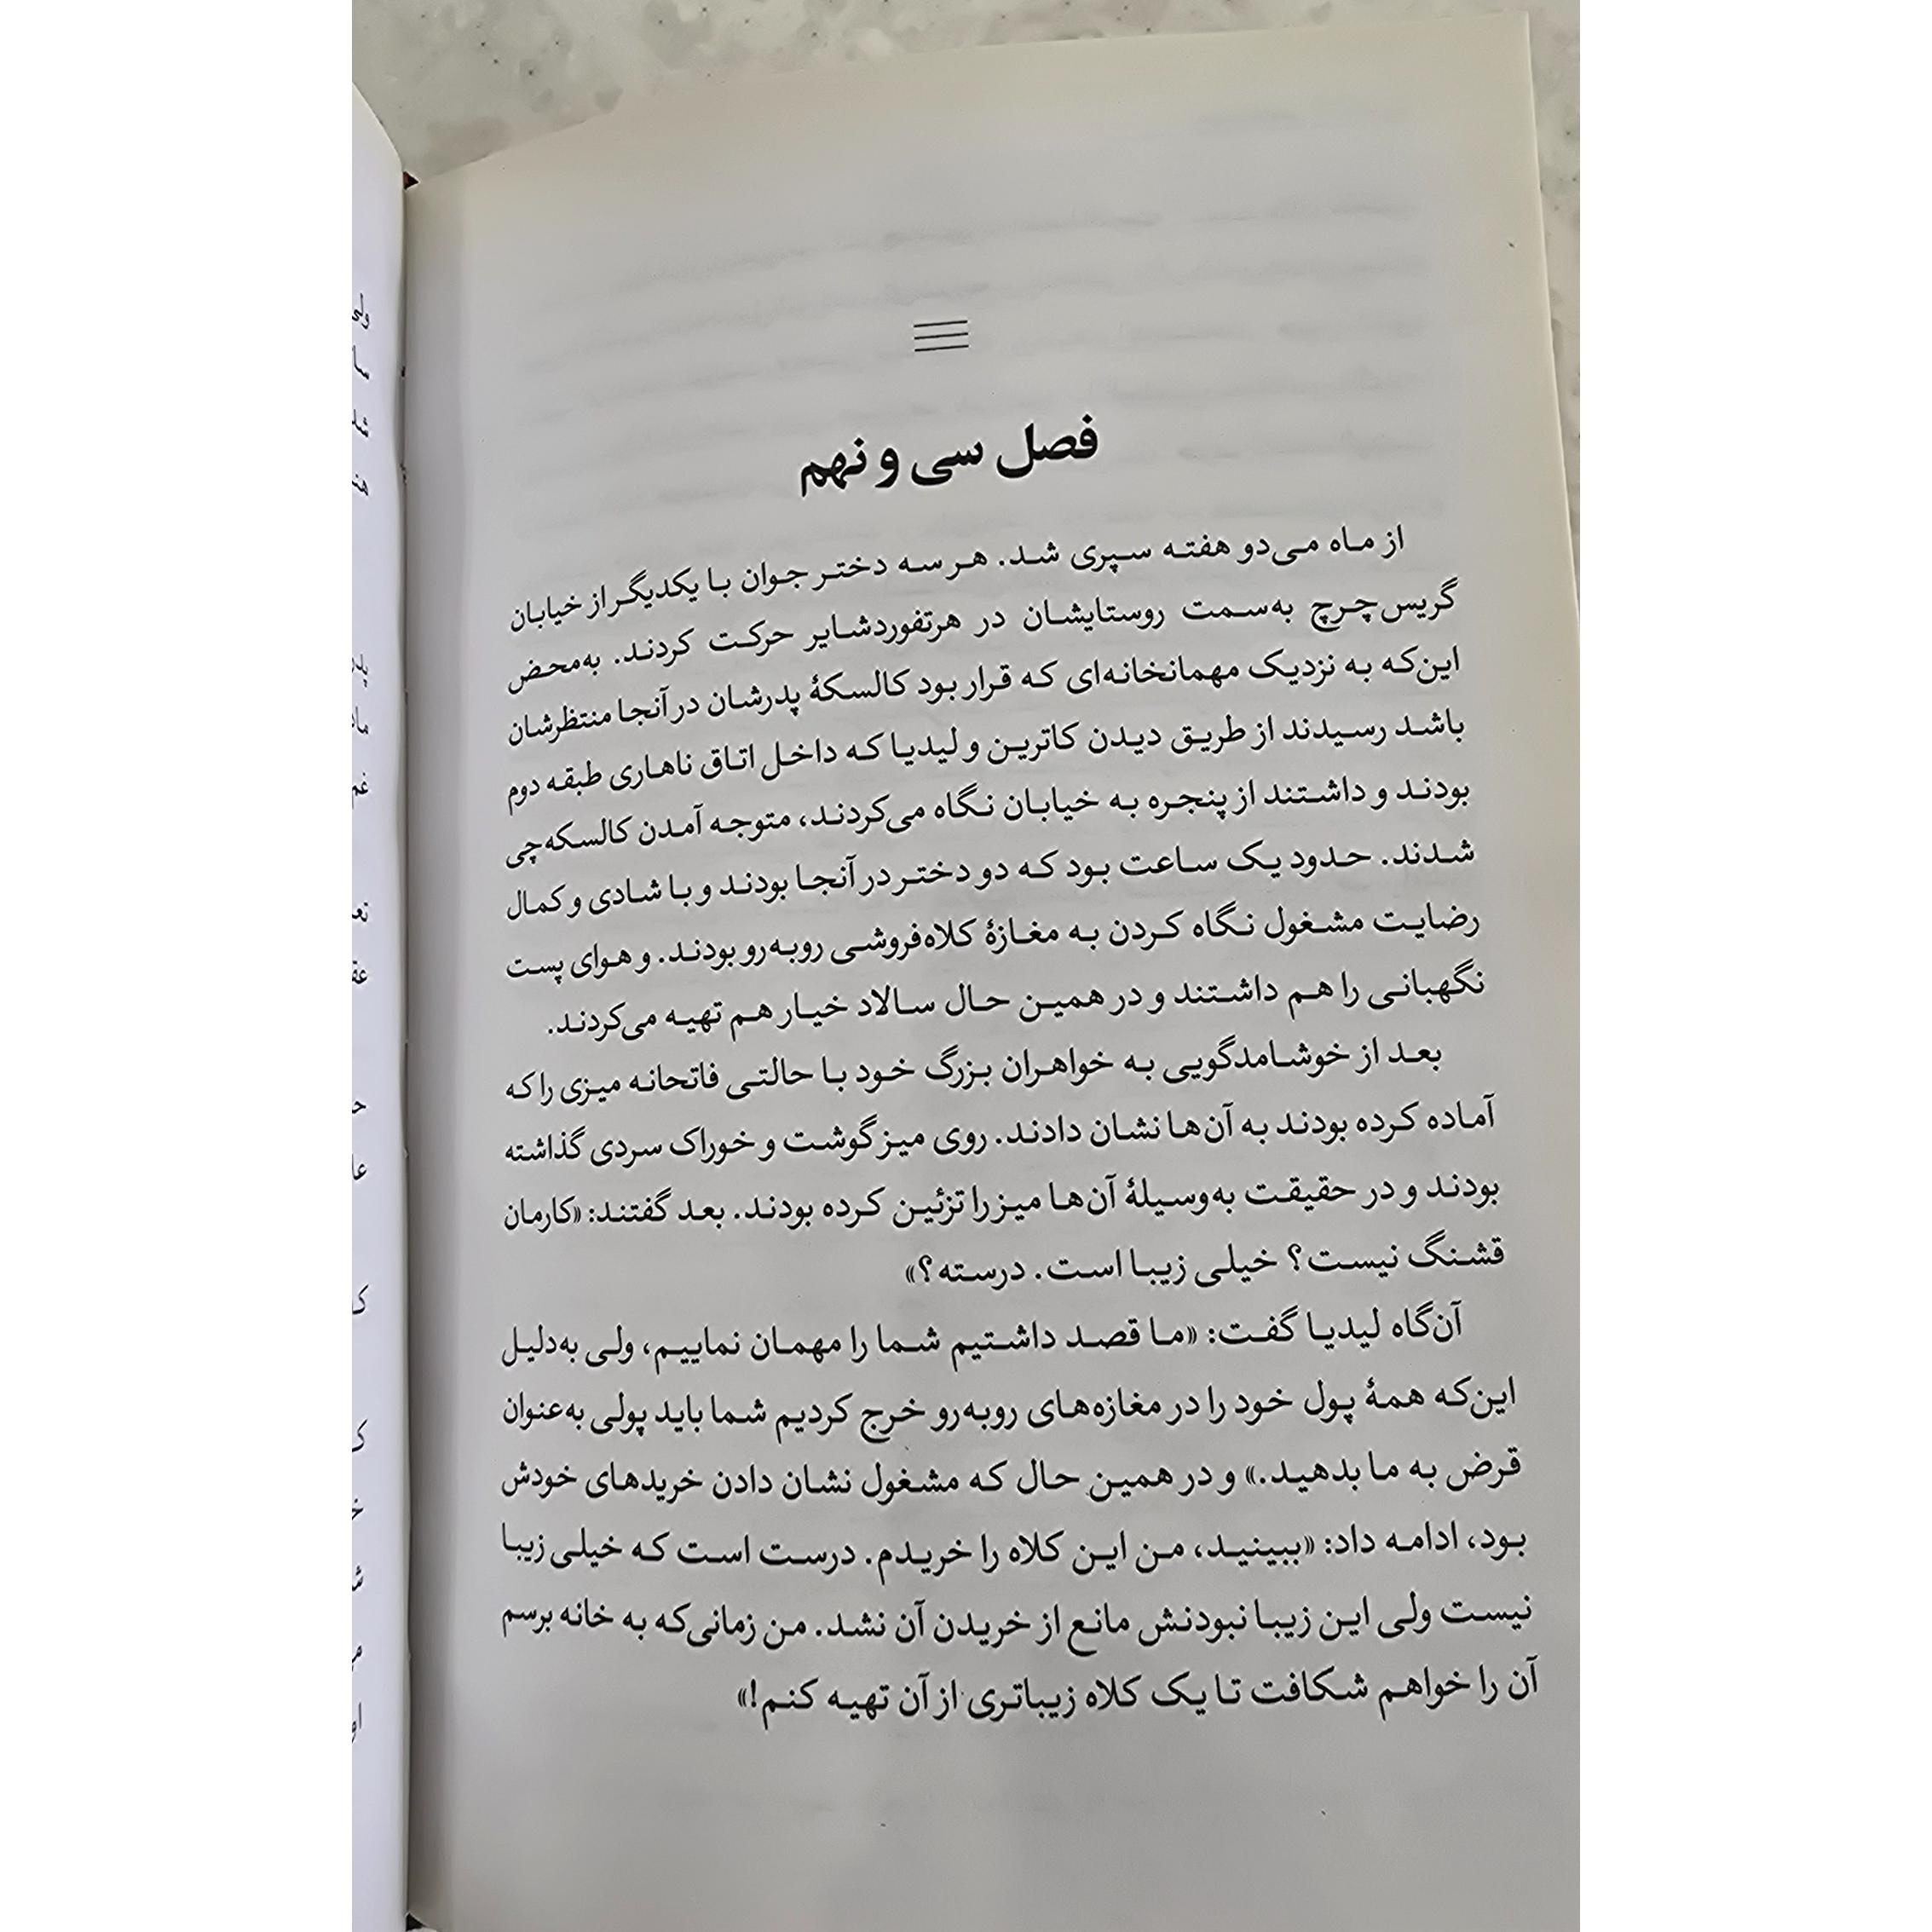 فصل سی و نهم
از ماه می دو هفته سپری شد. هر سه دختر جوان با یکدیگر از خیابان
گریس‌چرچ به‌سمت روستایشان در هرتفوردشایر حرکت کردند. به‌محض
این‌که به نزدیک مهمانخانه‌ای که قرار بود کالسکهٔ پدرشان در آنجا منتظرشان
باشد رسیدند از طریق دیدن کاترین و لیدیا که داخل اتاق ناهاری طبقه دوم
بودند و داشتند از پنجره به خیابان نگاه می‌کردند، متوجه آمدن کالسکه‌چی
شدند. حدود یک ساعت بود که دو دختر در آنجا بودند و با شادی و کمال
رضایت مشغول نگاه کردن به مغازهٔ کلاه‌فروشی روبه‌رو بودند. و هوای پست
نگهبانی را هم داشتند و در همین حال سالاد خیار هم تهیه می‌کردند.
بعد از خوشامدگویی به خواهران بزرگ خود با حالتی فاتحانه میزی را که
آماده کرده بودند به آن‌ها نشان دادند. روی میز گوشت و خوراک سردی گذاشته
بودند و در حقیقت به‌وسیلهٔ آن‌ها میز را تزئین کرده بودند. بعد گفتند: «کارمان
قشنگ نیست؟ خیلی زیبا است. درسته؟»
آن‌گاه لیدیا گفت: «ما قصد داشتیم شما را مهمان نماییم، ولی به‌دلیل
این‌که همهٔ پول خود را در مغازه‌های روبه‌رو خرج کردیم شما باید پولی به‌عنوان
قرض به ما بدهید.» و در همین حال که مشغول نشان دادن خریدهای خودش
بود، ادامه داد: «ببینید، من این کلاه را خریدم. درست است که خیلی زیبا
نیست ولی این زیبا نبودنش مانع از خریدن آن نشد. من زمانی‌که به خانه برسم
آن را خواهم شکافت تا یک کلاه زیباتری از آن تهیه کنم!»